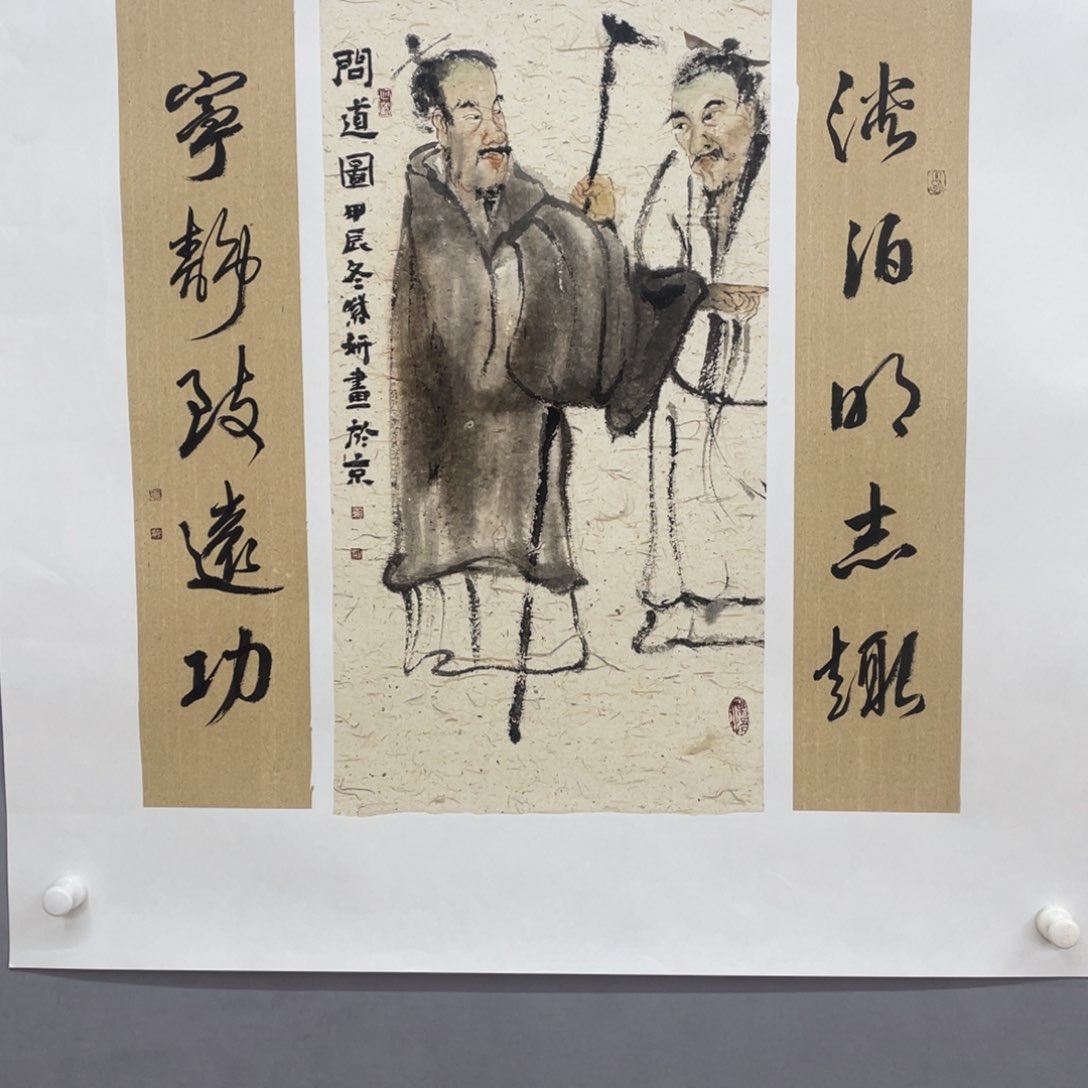 淡泊明志趣
問道圖 甲辰冬紫妍畫於京
寧靜致遠功